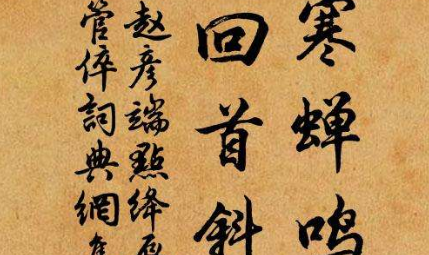 寒蝉鸣
回首斜
赵彦端點绛唇
管倅詞典網